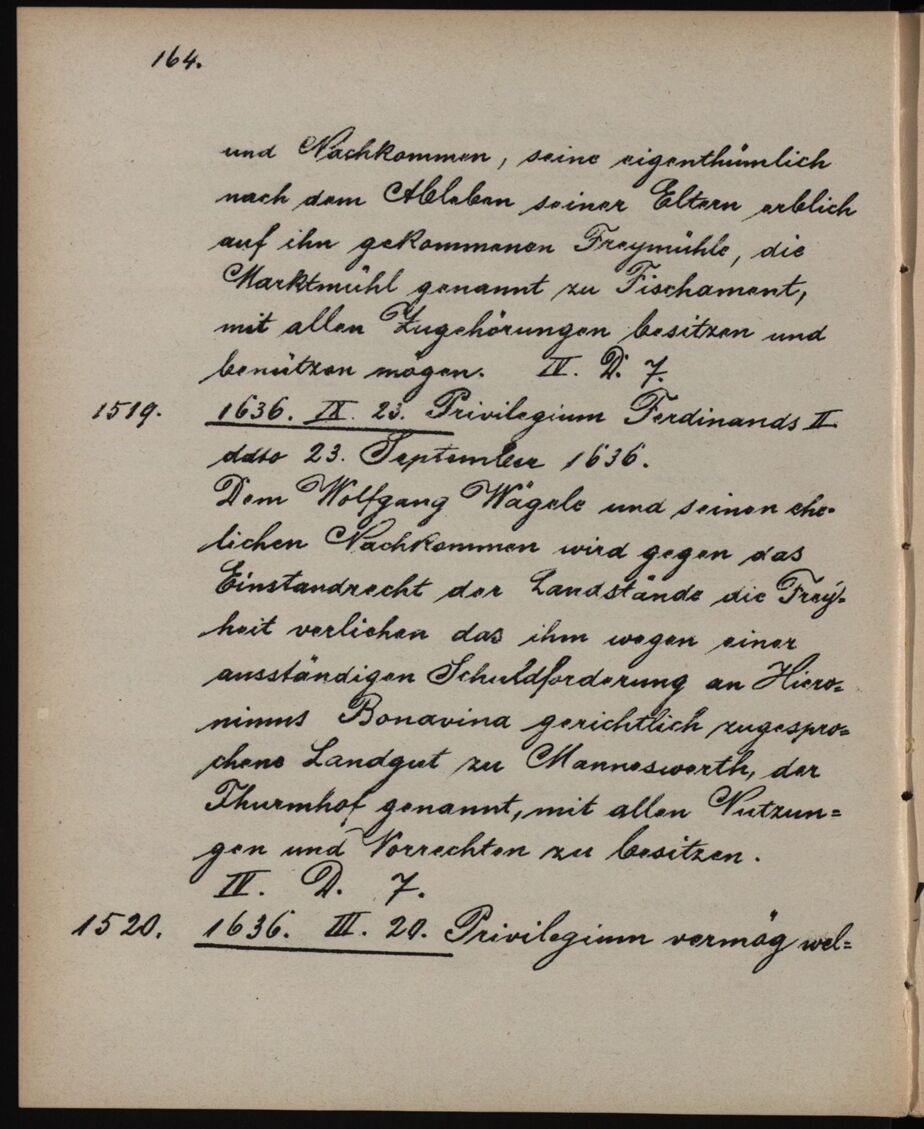 164.
und Nachkommen, seine eigenthümlich
nach dem Ableben seiner Eltern erblich
auf ihn gekommenen Freymühle, die
Marktmühl genannt zu Fischament,
mit allen Zugehörungen besitzen und
benützen mögen. IV. D. 7.
1519. 1636. IX. 23. Privilegium Ferdinands II
ddto 23. September 1636.
Dem Wolfgang Wägele und seinen ehe-
lichen Nachkommen wird gegen das
Einstandrecht der Landstände die Frey-
heit verliehen das ihm wegen einer
ausständigen Schuldforderung an Hiero=
nimus Bonavina gerichtlich zugespro=
chene Landgut zu Manneswerth, der
Thurmhof genannt, mit allen Nutzun=
gen und Vorrechten zu besitzen.
IV. D. 7.
1520. 1636. III. 20. Privilegium vermög wel=